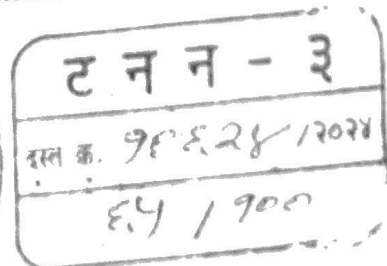 ट न न - ३
दस्त क्र. १६६२४ /२०२४
६५ / १००